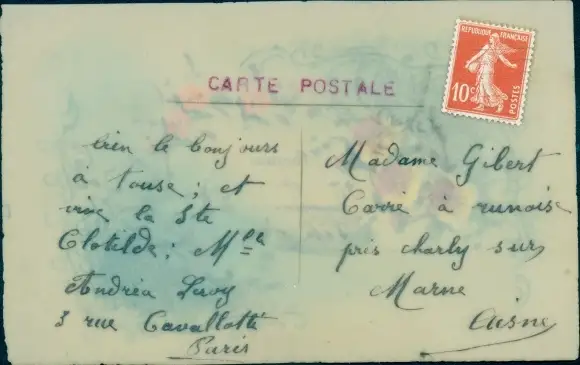 CARTE POSTALE
REPUBLIQUE FRANÇAISE
10c
POSTES
bien le bonjours
à touse ; et
vive la Ste
Clotilde ; Mlle
Andréa Leroy
3 rue Cavallotti
Paris
Madame Gibert
Carrié à runoise
près charly sur
Marne
Aisne